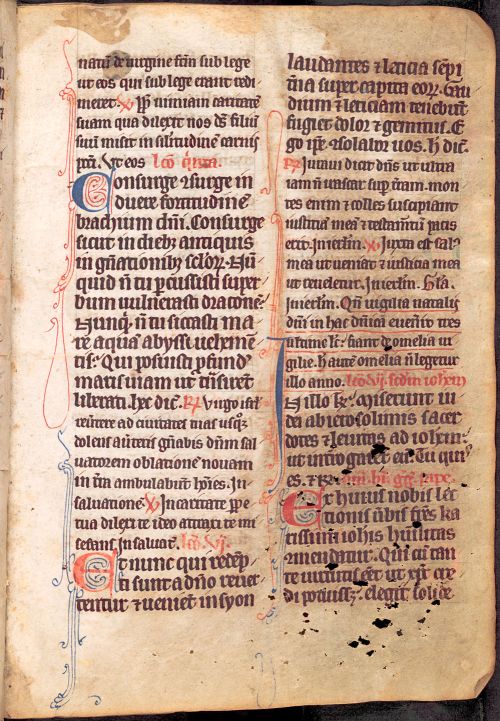 natum de virgine factum sub lege
ut eos qui sub lege erant redi-
meret. V. pp nimiam caritatem
suam qua dilexit nos ds filiu
suu misit in silitudine carnis
Ut eos
Consurge Consurge in
duere fortitudine
brachium dni. Consurge
sicut in dieb; antiquis
in gnationib; sclor. Nu
quid n tu pcussisti super
bum vulnerasti dracone
Nunq n tu siccasti ma
re aqua abyssi vehemen
tis. Qui posuisti pfund
maris viam ut tnsiret
liberati. hec dic. R. Virgo isrl
revtere ad civitates tuas usq;
dolens avteris gnabis dnm sal
vatorem oblatione novam
in tra ambulabunt hoies. In
salvatione V In caritate ppe
tua dilexi te ideo attraxi te mi
serans. In salvat. lco vi.
Et nunc qui redep
ti sunt a dno revte
rentur et venient in syon
laudantes et leticia sepi
tna super capita eor. Gau
dium et leticiam tenebunt
fugiet dolor et gemitus. E
go ipe consolabor vos. h dic.
R Iuravi dicit dns ut ultra
iam n irascar sup tram. mon
tes enim et colles suscipiant
iusticia mea et testamtum pacis
erit. In ierlm. V Iuxta est sal
mea ut veniat et iusticia mea
ut reveletur. In ierlm. Gla.
In ierlm. Qn vigilia natalis
dni in hac dnica evenit tres
ultime lc. fiant de omelia vi
gilie. h autem omelia n legetur
illo anno. lco vii. scdm iohem
In illo t. Miserunt iu
dei ab ierosolimis sacer
dotes et levitas ad iohem.
ut introgarent eu. Tu quis
es. et r. om bi gg pape.
Ex huius nobis lec
tionis verbis fres ka
rissimi iohis humilitas
comendatur. Qui cu tan
te virtutis eet ut xpc cre
di potuisset. elegit solide